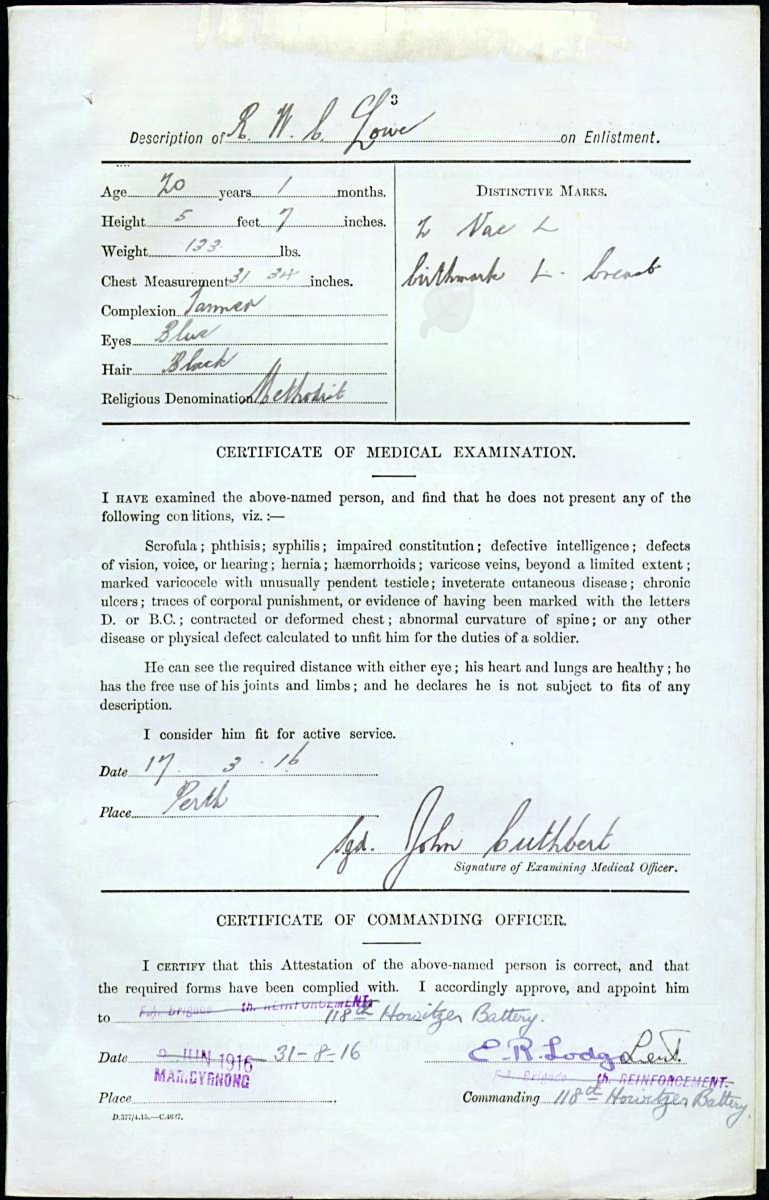 3
Description of R. W. C. Lowe on Enlistment.
Age 20 years 1 months.
Height 5 feet 7 inches.
Weight 133 lbs.
Chest Measurement 31 34 inches.
Complexion
Eyes Blue
Hair Black
Religious Denomination Methodist
DISTINCTIVE MARKS.
2 Vac L
birthmark L. breast
CERTIFICATE OF MEDICAL EXAMINATION.
I HAVE examined the above-named person, and find that he does not present any of the
following conditions, viz.:—
Scrofula; phthisis; syphilis; impaired constitution; defective intelligence; defects
of vision, voice, or hearing; hernia; hæmorrhoids; varicose veins, beyond a limited extent;
marked varicocele with unusually pendent testicle; inveterate cutaneous disease; chronic
ulcers; traces of corporal punishment, or evidence of having been marked with the letters
D. or B.C.; contracted or deformed chest; abnormal curvature of spine; or any other
disease or physical defect calculated to unfit him for the duties of a soldier.
He can see the required distance with either eye; his heart and lungs are healthy; he
has the free use of his joints and limbs; and he declares he is not subject to fits of any
description.
I consider him fit for active service.
Date 17. 3. 16
Place Perth
Sgd. John Cuthbert
Signature of Examining Medical Officer.
CERTIFICATE OF COMMANDING OFFICER.
I CERTIFY that this Attestation of the above-named person is correct, and that
the required forms have been complied with. I accordingly approve, and appoint him
F.A. Brigade th. REINFORCEMENT.
to 118th Howitzer Battery.
Date JUN 1916 31-8-16 E. R. Lodge Lieut.
MARIBYRNONG
F.A. Brigade th. REINFORCEMENT.
Place Commanding 118th Howitzer Battery.
D.377/4.15.—C.4647.